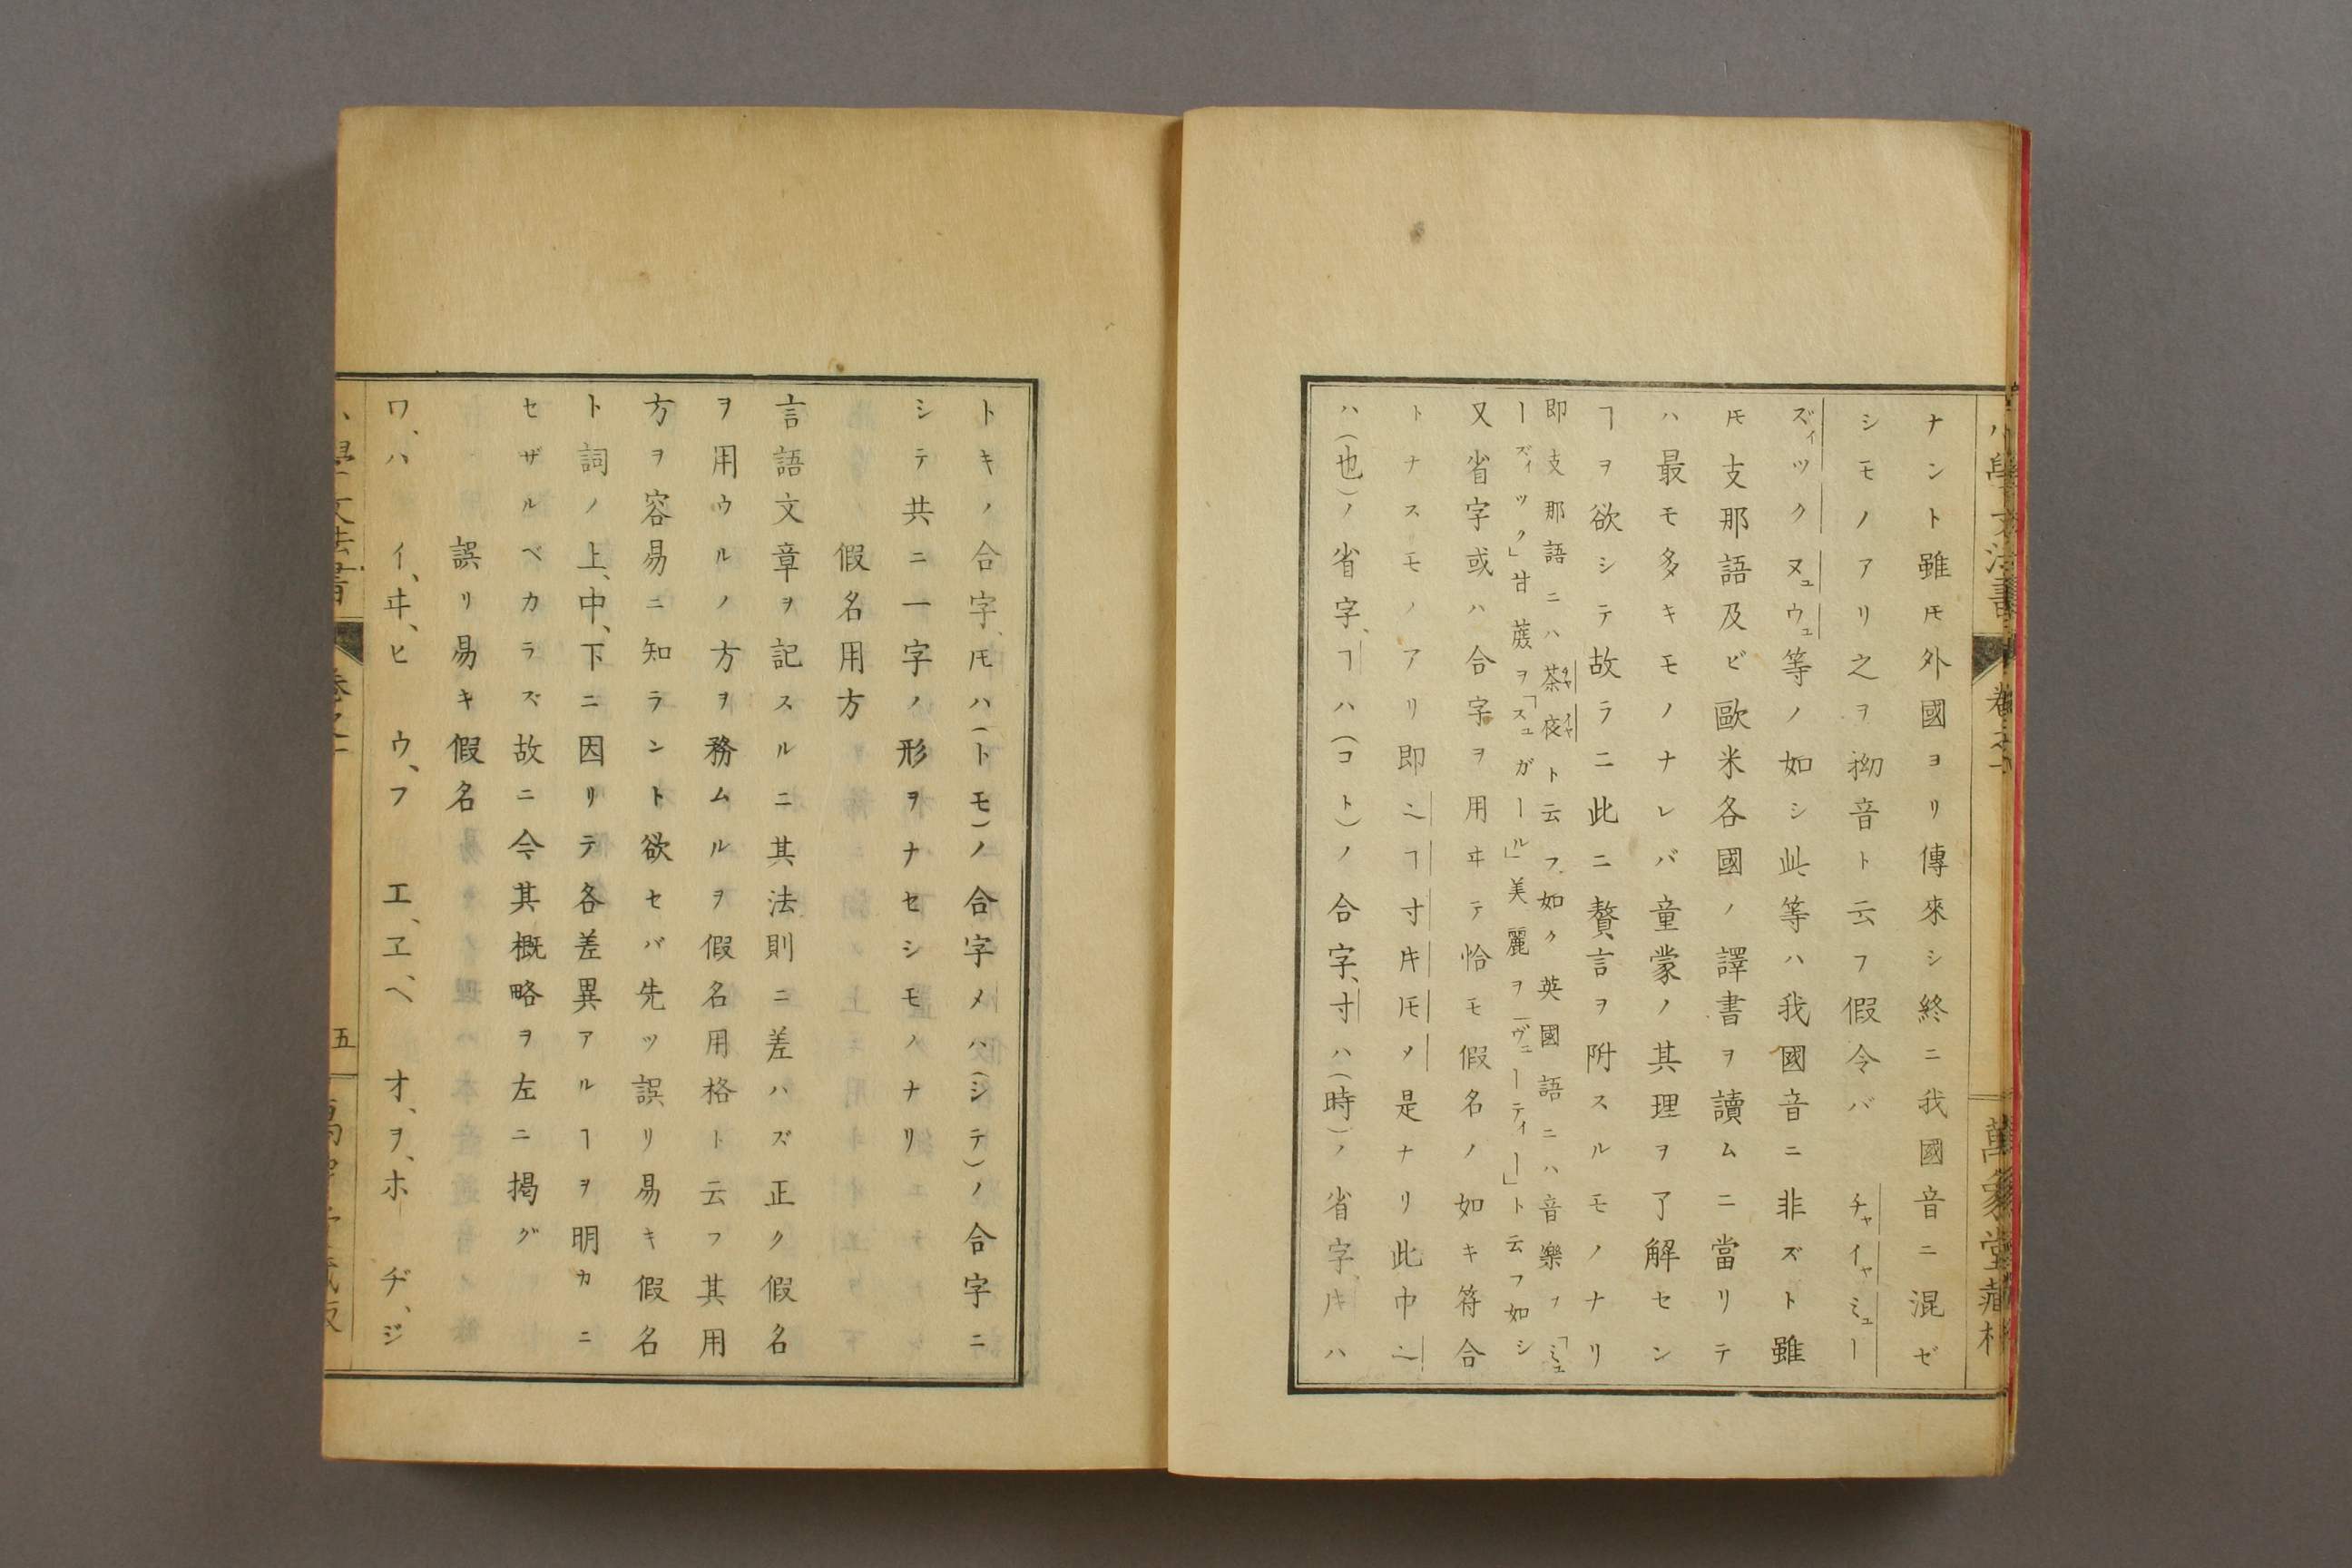 小學文法書 卷之一 萬象堂藏梓
ナント雖𪜈外國ヨリ傳來シ終ニ我國音ニ混ゼ
シモノアリ之ヲ拗音ト云フ假令バ チャ イャ ミュー
ズィック ヌュ ウュ 等ノ如シ此等ハ我國音ニ非ズト雖
𪜈支那語及ビ歐米各國ノ譯書ヲ讀ムニ當リテ
ハ最モ多キモノナレバ童蒙ノ其理ヲ了解セン
ヿヲ欲シテ故ラニ此ニ贅言ヲ附スルモノナリ
即支那語ニハ茶夜ト云フ如ク英國語ニハ音樂ヲ「ミュ
ーズィック」甘蔗ヲ「スュガール」美麗ヲ「ヴューティー」ト云フ如シ
又省字或ハ合字ヲ用ヰテ恰モ假名ノ如キ符合
トナスモノアリ即𬼂ヿ寸𬼀𪜈〆是ナリ此中𬼂
ハ(也)ノ省字、ヿハ(コト)ノ合字、寸ハ(時)ノ省字、𬻿ハ
トキノ合字、𪜈ハ(トモ)ノ合字メハ(シテ)ノ合字ニ
シテ共ニ一字ノ形ヲナセシモノナリ
假名用方
言語文章ヲ記スルニ其法則ニ差ハズ正ク假名
ヲ用ウルノ方ヲ務ムルヲ假名用格ト云フ其用
方ヲ容易ニ知ラント欲セバ先ッ誤リ易キ假名
ト詞ノ上、中、下ニ因リテ各差異アルヿヲ明カニ
セザルベカラズ故ニ今其概略ヲ左ニ掲グ
誤リ易キ假名
ワ、ハ イ、ヰ、ヒ ウ、フ エ、ヱ、ヘ オ、ヲ、ホ ヂ、ジ
五